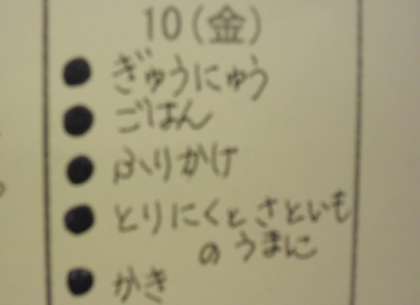 10(金)
● ぎゅうにゅう
● ごはん
● ふりかけ
● とりにくとさといも
のうまに
● かき